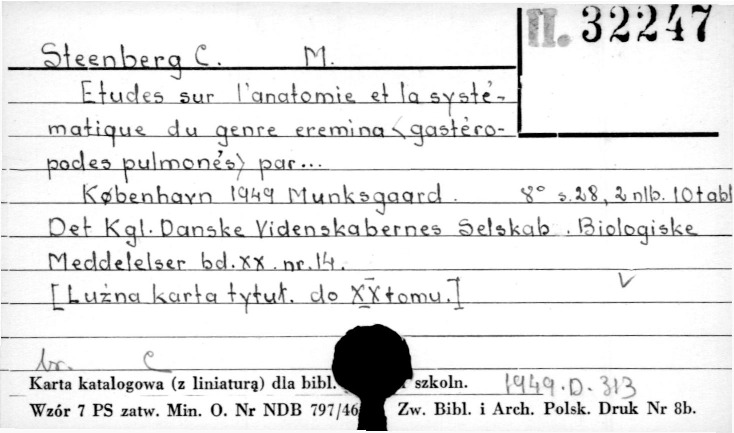 II. 32247
Steenberg C. M.
Etudes sur l'anatomie et la systé-
matique du genre eremina <gastéro-
podes pulmonés> par...
København 1949 Munksgaard. 8° s.28, 2 nlb. 10 tabl
Det Kgl. Danske Videnskabernes Selskab. Biologiske
Meddelelser bd.xx. nr.14.
[Luźna karta tytuł. do XX tomu.]
br. C
Karta katalogowa (z liniaturą) dla bibl. szkoln. 1949.D.313
Wzór 7 PS zatw. Min. O. Nr NDB 797/46 Zw. Bibl. i Arch. Polsk. Druk Nr 8b.